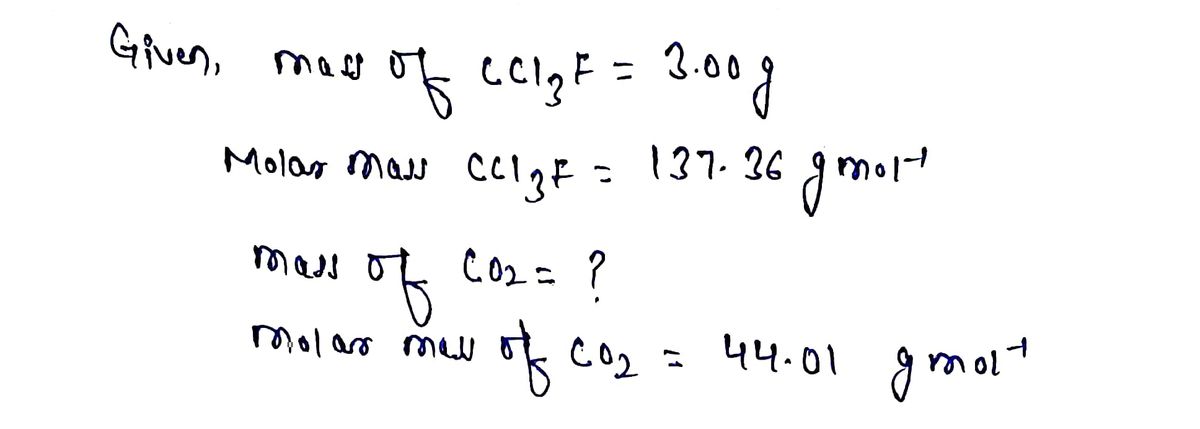 Given, mass of CCl₃F = 3.00 g
Molar mass CCl₃F = 137.36 g mol⁻¹
mass of CO₂ = ?
molar mass of CO₂ = 44.01 g mol⁻¹